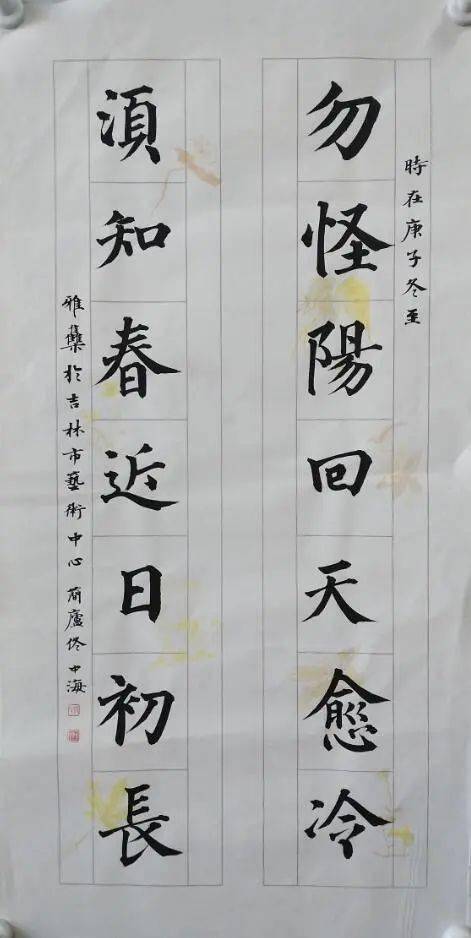 時在庚子冬至
勿怪陽回天愈冷
湏知春近日初長
雅集於吉林市藝術中心 簡廬佟中海